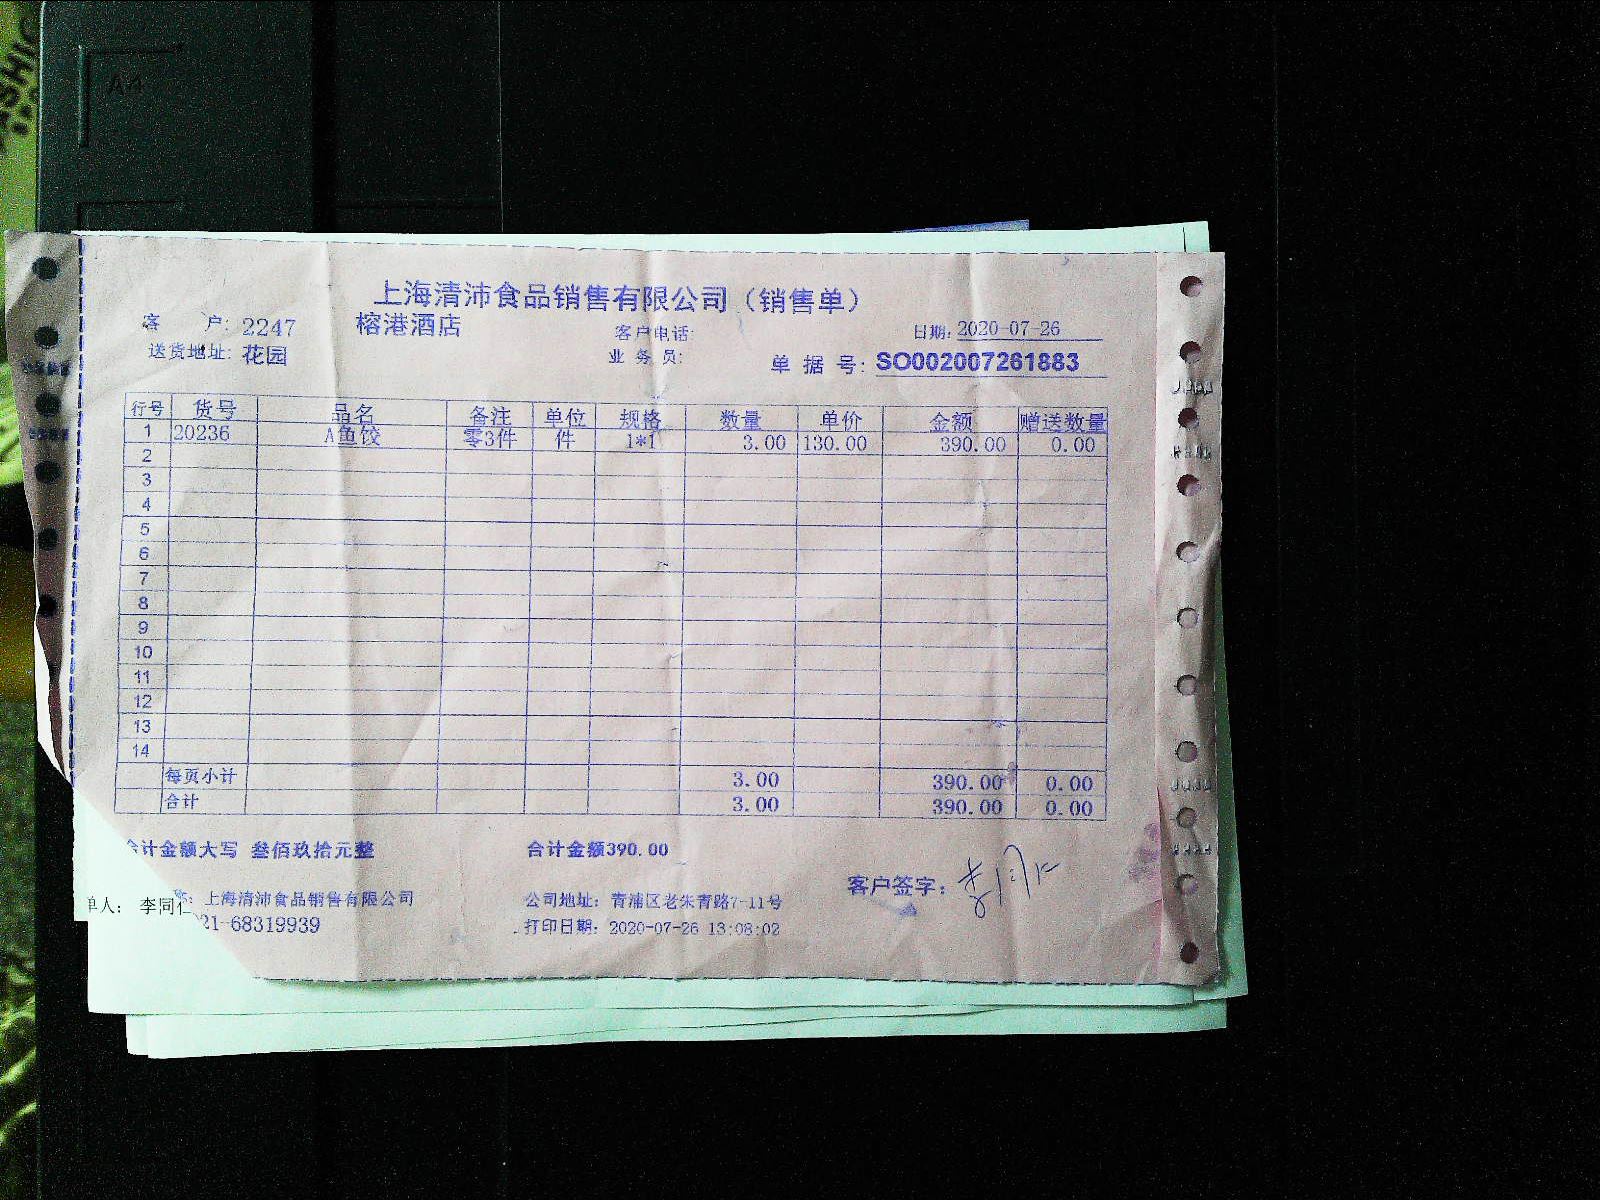 A4
上海清沛食品销售有限公司（销售单）
客 户: 2247 榕港酒店 客户电话: 日期: 2020-07-26
送货地址: 花园 业 务 员: 单 据 号: SO002007261883
行号 货号 品名 备注 单位 规格 数量 单价 金额 赠送数量
1 20236 A鱼饺 零3件 件 1*1 3.00 130.00 390.00 0.00
2
3
4
5
6
7
8
9
10
11
12
13
14
每页小计 3.00 390.00 0.00
合计 3.00 390.00 0.00
合计金额大写 叁佰玖拾元整 合计金额390.00
客户签字:
上海清沛食品销售有限公司 公司地址: 青浦区老朱青路7-11号
单人: 李同
21-68319939 打印日期: 2020-07-26 13:08:02